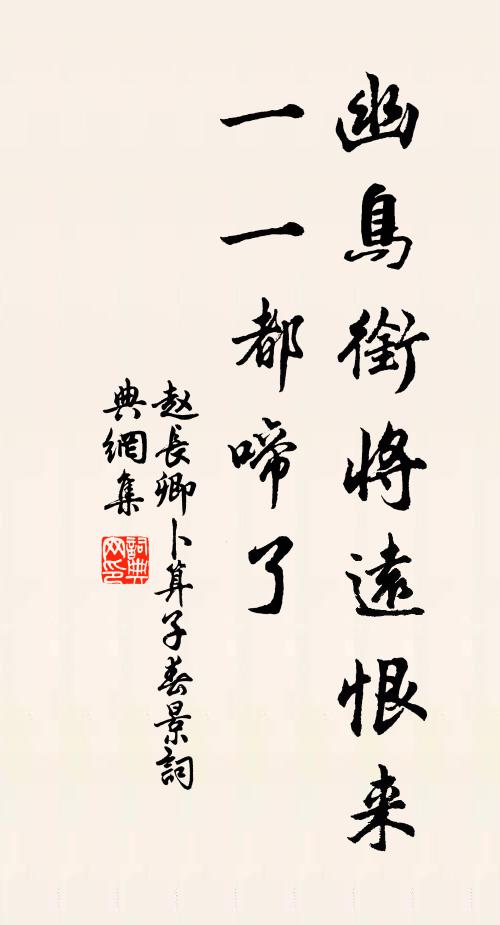 幽鳥銜將遠恨来
一一都啼了
赵長卿卜算子春景詞
典網集
詞典
网印